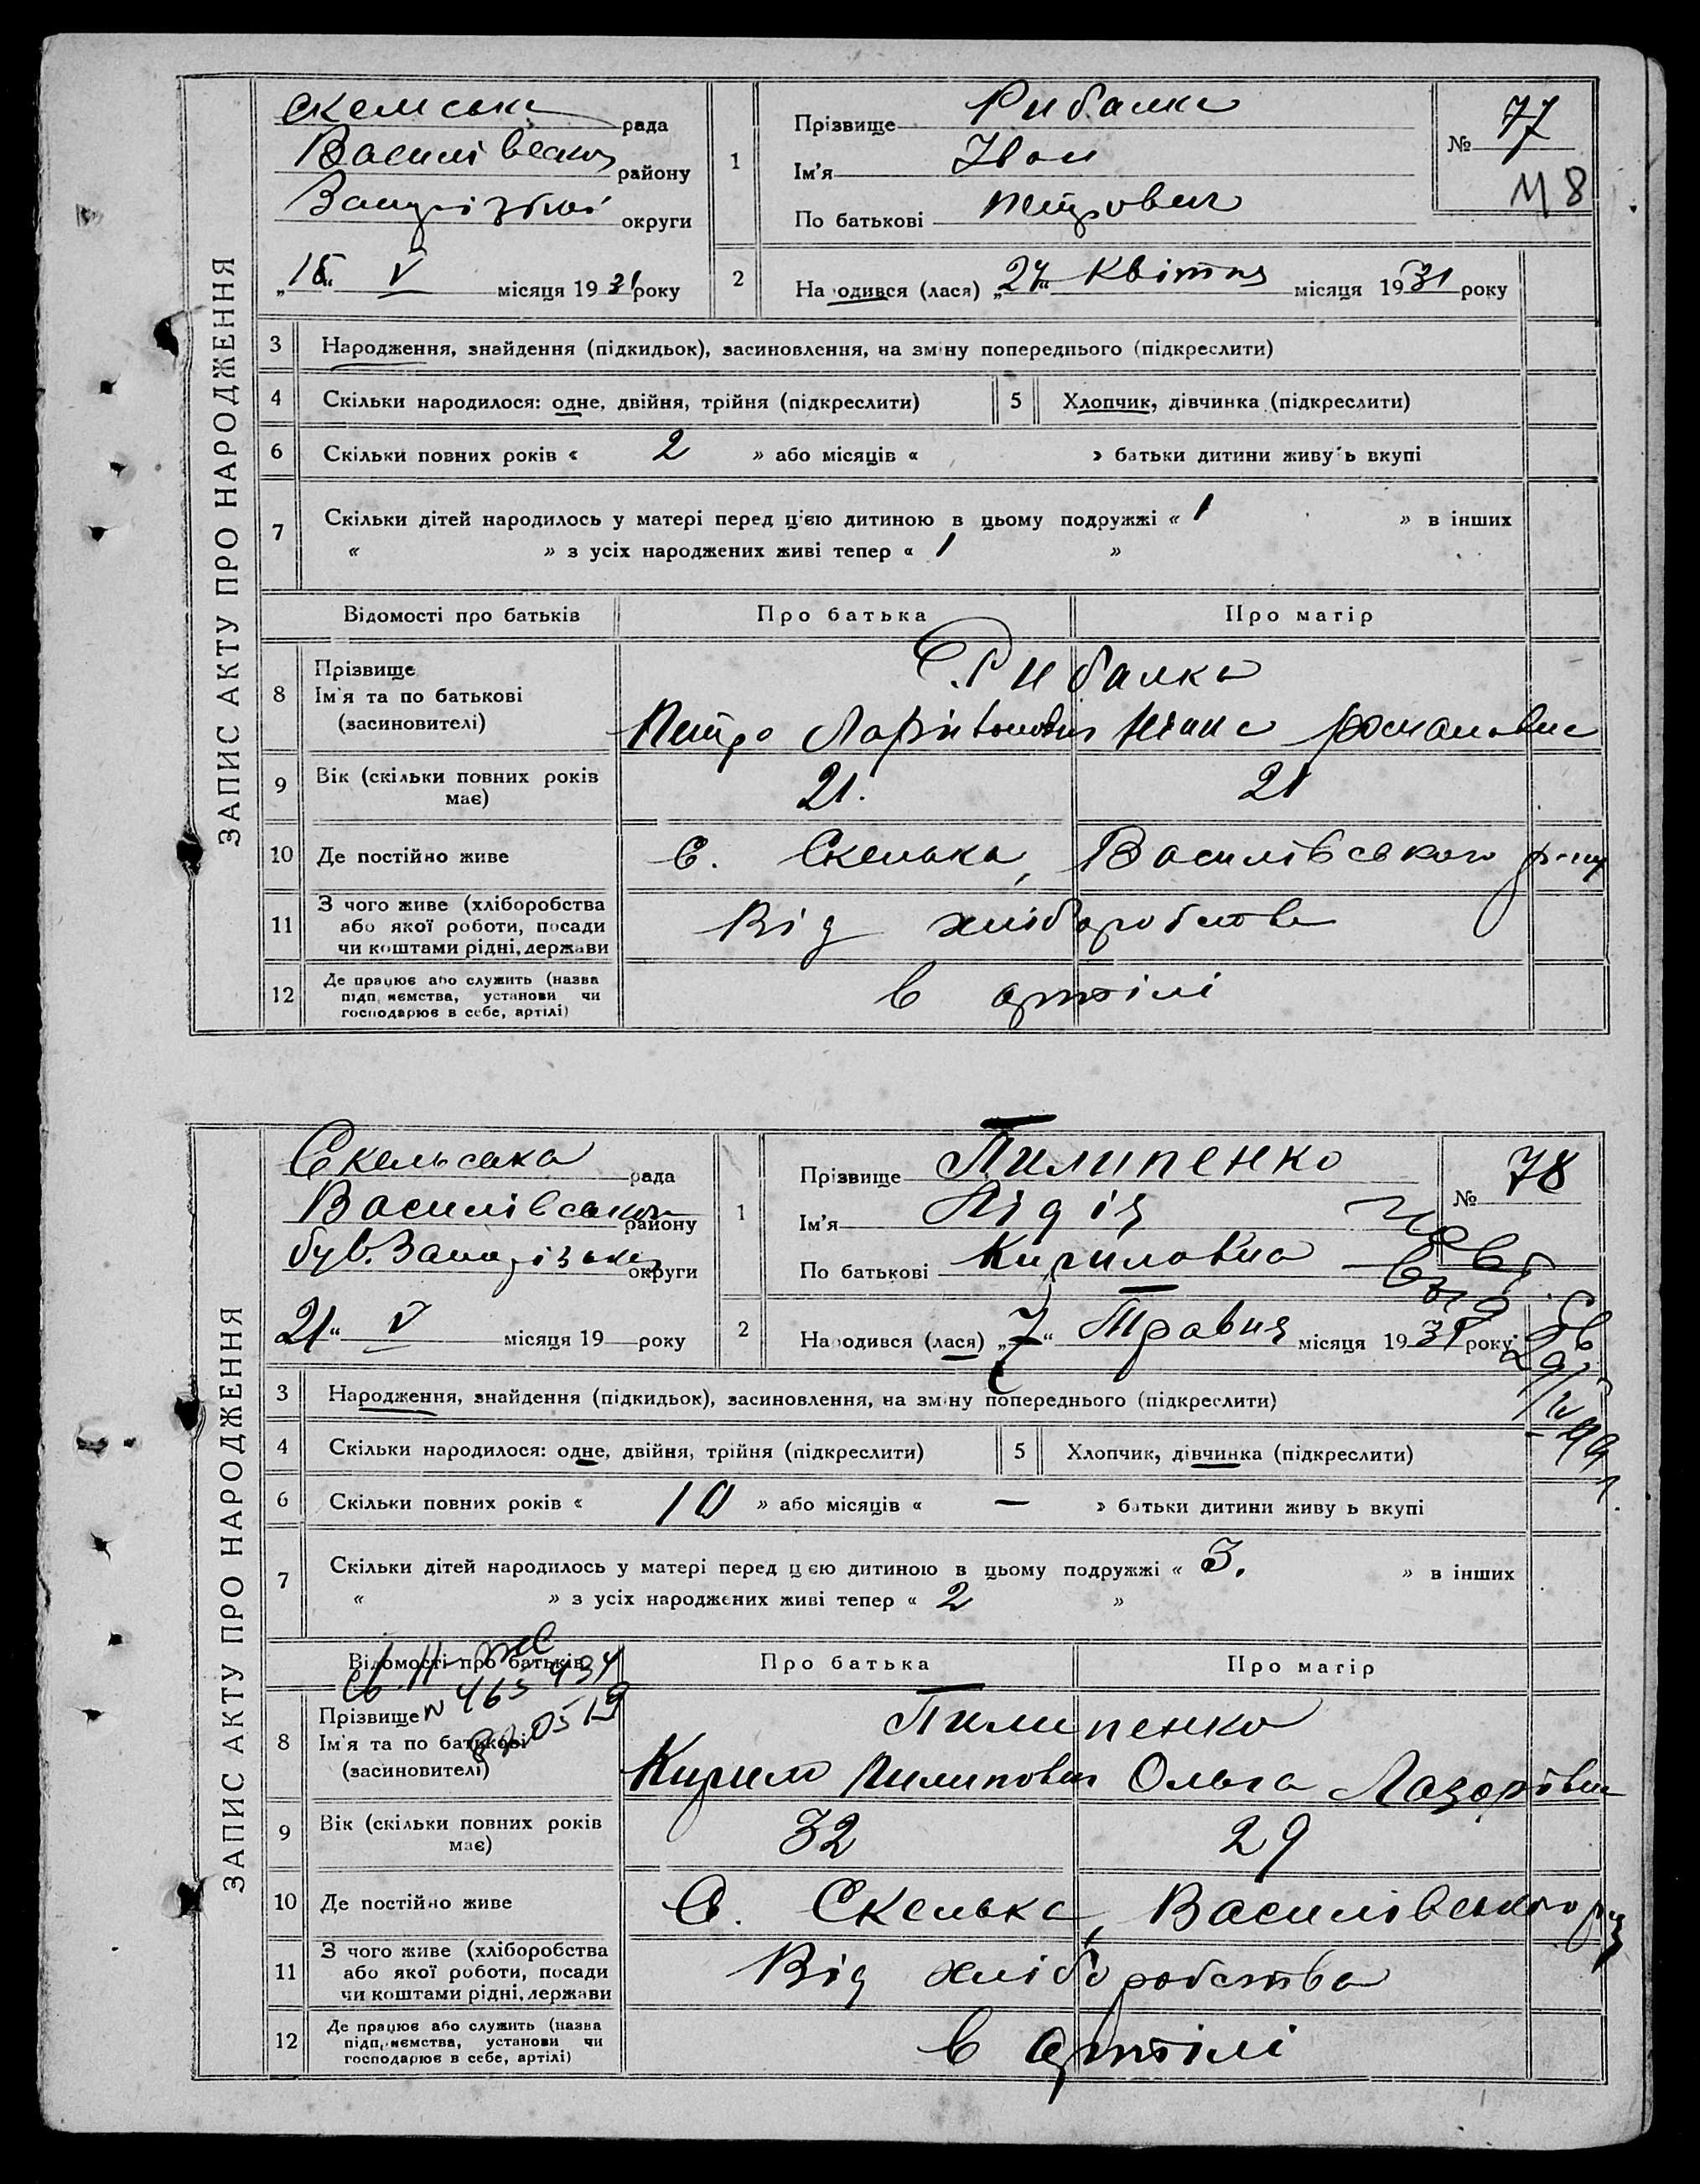 ЗАПИС АКТУ ПРО НАРОДЖЕННЯ
Скельська рада
Василівського району
Запорізької округи
„18“ V місяця 1931 року
1
Прізвище Рибалка
Ім'я Іван
По батькові Петрович
№ 77
М 8
2
Народився (лася) „24“ Квітня місяця 1931 року
3 Народження, знайдення (підкидьок), засиновлення, на зміну попереднього (підкреслити)
4 Скільки народилося: одне, двійня, трійня (підкреслити)
5 Хлопчик, дівчинка (підкреслити)
6 Скільки повних років « 2 » або місяців « » батьки дитини живуть вкупі
7 Скільки дітей народилось у матері перед цією дитиною в цьому подружжі « 1 » в інших
« » з усіх народжених живі тепер « 1 »
Відомості про батьків Про батька Про матір
8 Прізвище
Ім'я та по батькові
(засиновителі)
Рибалка
Петро Романовна
9 Вік (скільки повних років має)
21. 21
10 Де постійно живе
С. Скелька, Василівського р-ну
11 З чого живе (хліборобства або якої роботи, посади чи коштами рідні, держави
Від хліборобства
12 Де працює або служить (назва підприємства, установи чи господарює в себе, артілі)
в артілі
ЗАПИС АКТУ ПРО НАРОДЖЕННЯ
Скельська рада
Василівського району
був. Запорізької округи
21“ V місяця 19 року
1
Прізвище Пилипенко
Ім'я Лідія
По батькові Кириловна
№ 78
2
Народився (лася) „7“ Травня місяця 1931 року
3 Народження, знайдення (підкидьок), засиновлення, на зміну попереднього (підкреслити)
4 Скільки народилося: одне, двійня, трійня (підкреслити)
5 Хлопчик, дівчинка (підкреслити)
6 Скільки повних років « 10 » або місяців « — » батьки дитини живуть вкупі
7 Скільки дітей народилось у матері перед цією дитиною в цьому подружжі « 3. » в інших
« » з усіх народжених живі тепер « 2 »
Відомості про батьків Про батька Про матір
8 Прізвище
Ім'я та по батькові
(засиновителі)
Пилипенко
Кирило Пилипович Ольга Лазорівна
9 Вік (скільки повних років має)
32 29
10 Де постійно живе
С. Скелька, Василівського р-ну
11 З чого живе (хліборобства або якої роботи, посади чи коштами рідні, держави
Від хліборобства
12 Де працює або служить (назва підприємства, установи чи господарює в себе, артілі)
в артілі